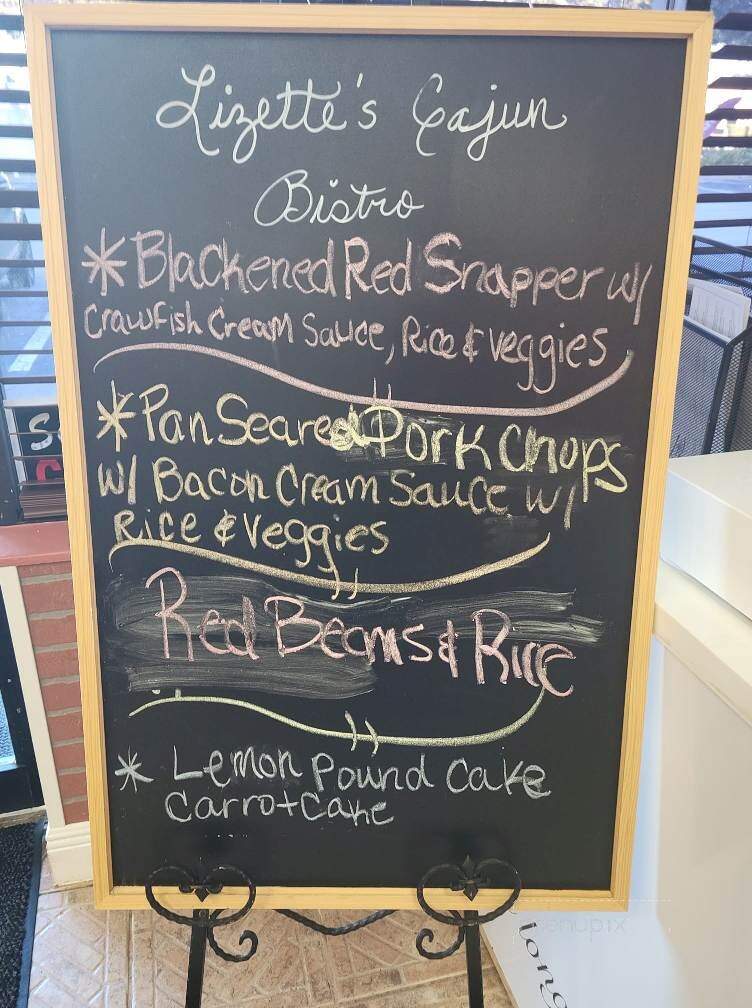 Lizette's Cajun
Bistro
* Blackened Red Snapper w/
Crawfish Cream Sauce, Rice & veggies
* Pan Seared Pork Chops
w/ Bacon Cream Sauce w/
Rice & veggies
Red Beans & Rice
* Lemon Pound Cake
Carrot Cake